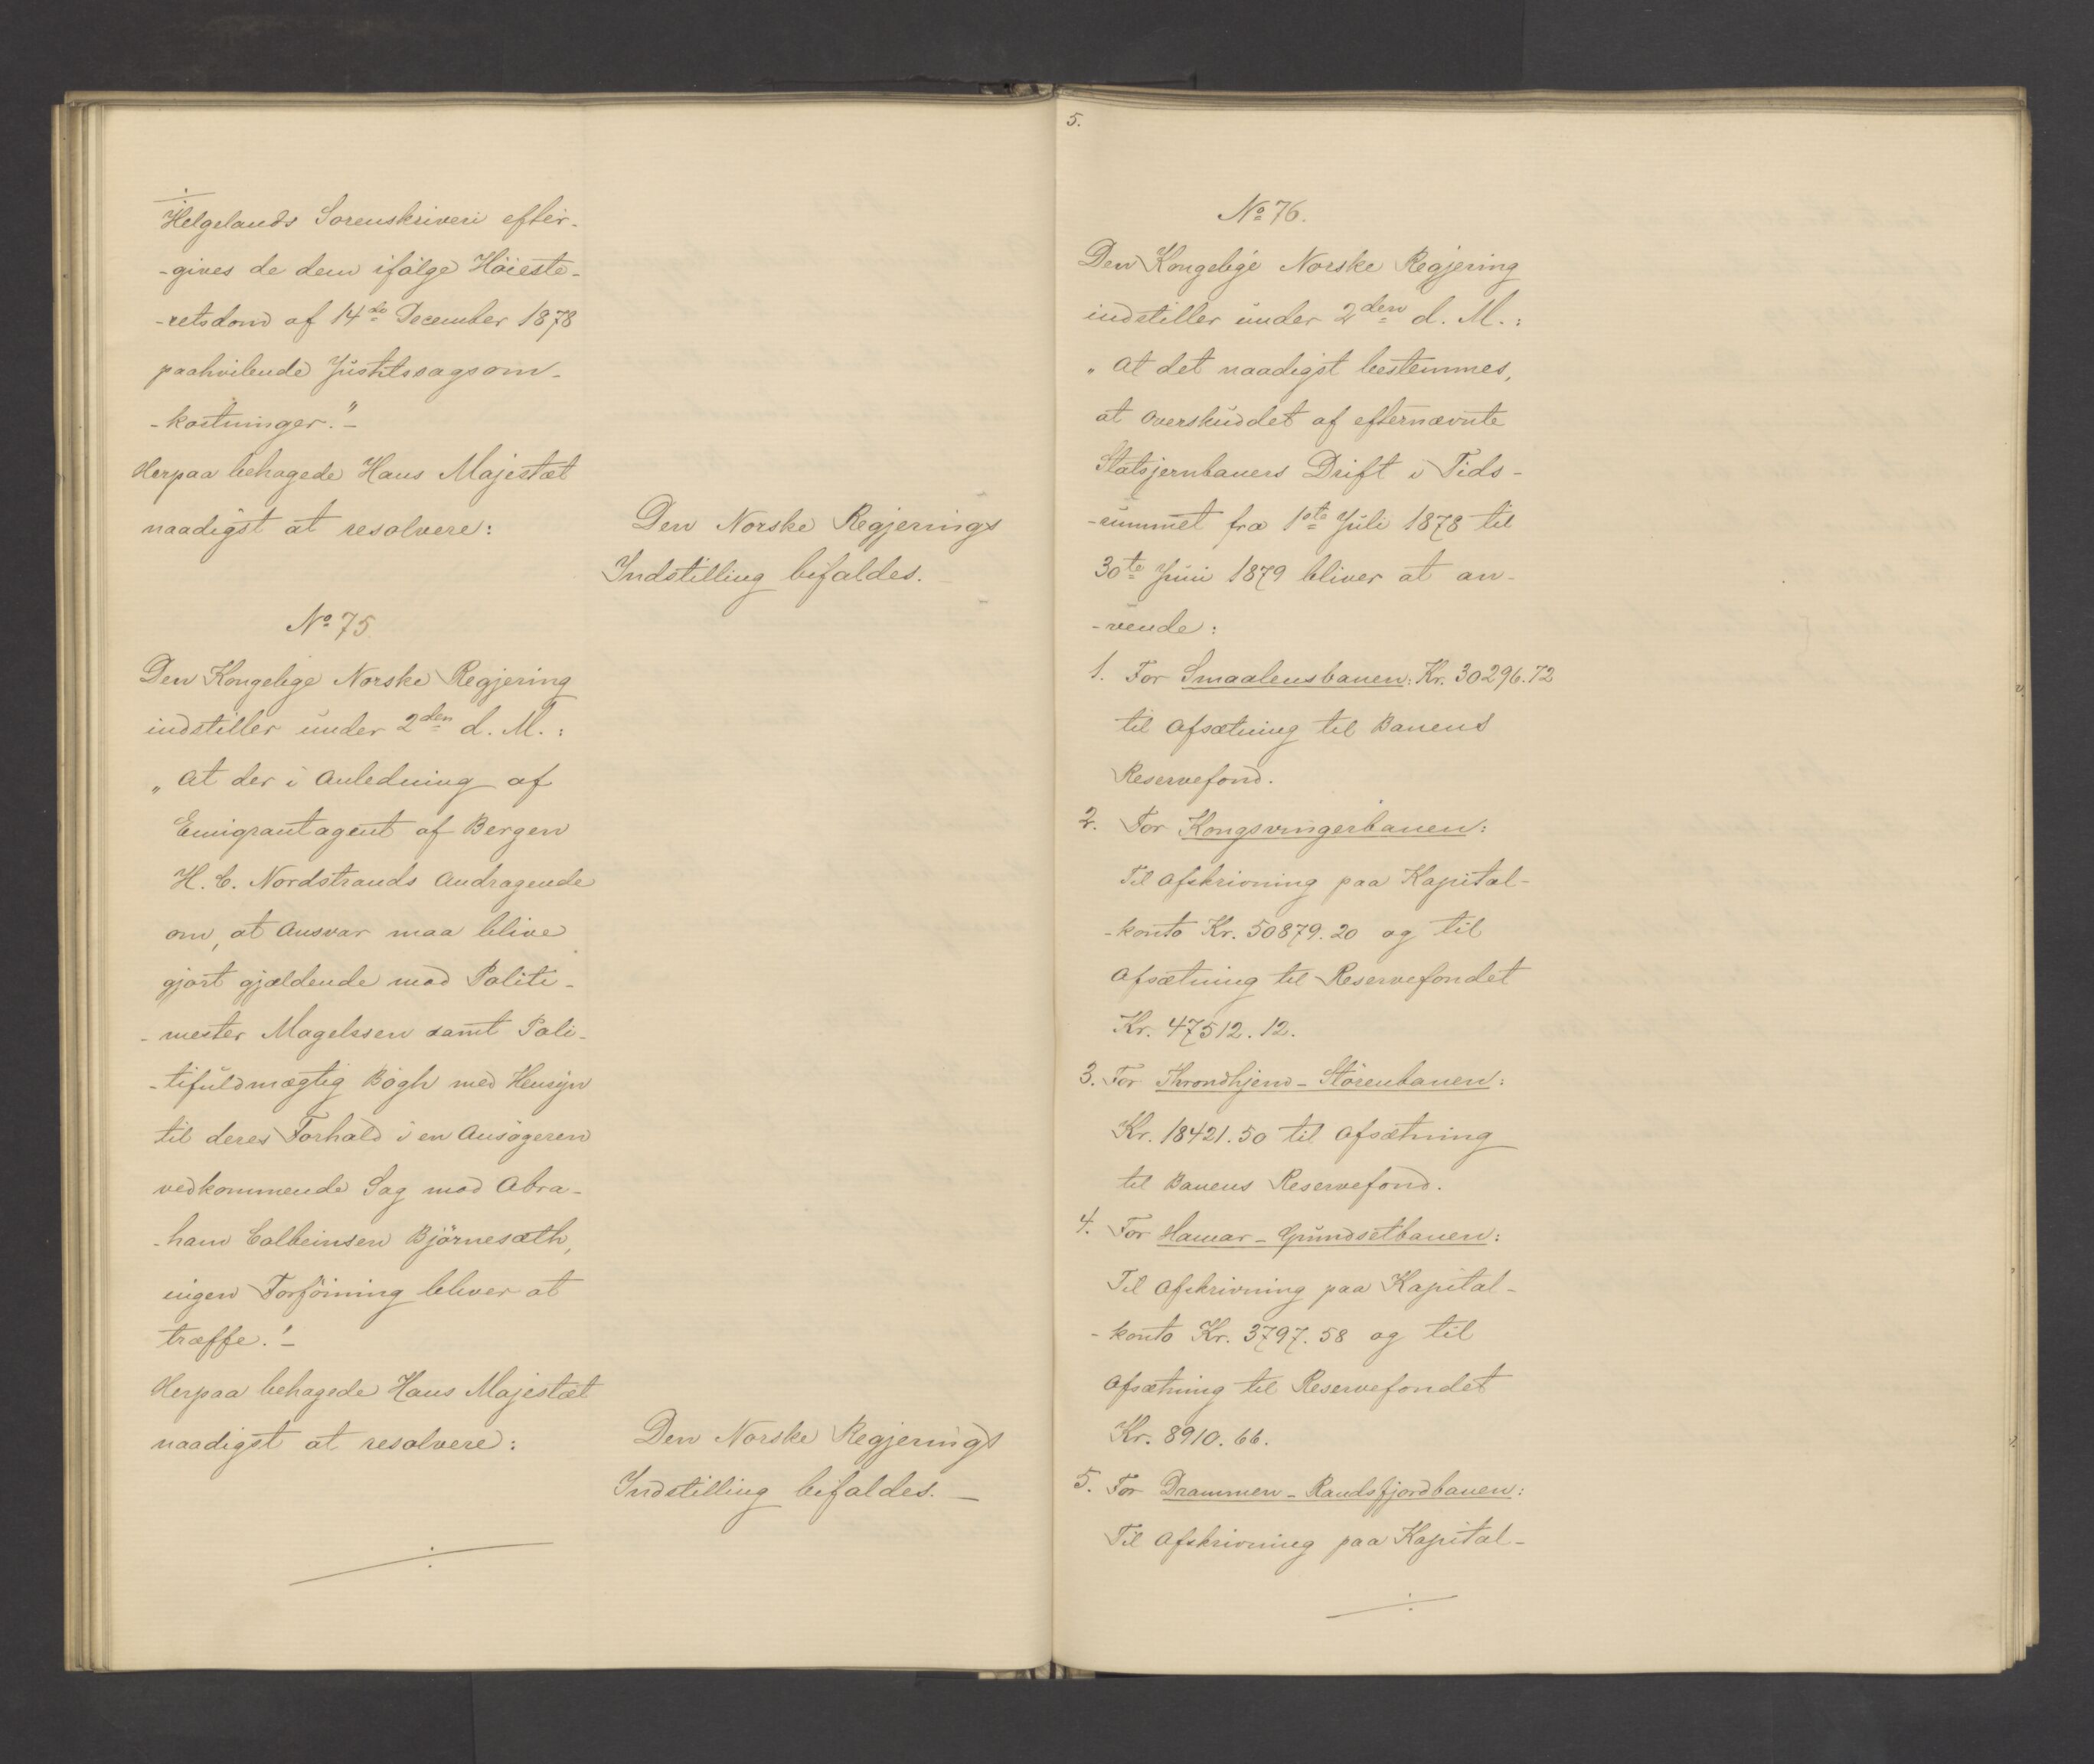 Helgelands Sorenskriveri efter-
-gives de dem ifölge Höieste-
-retsdom af 14de December 1878
paahvilende Justitssagsom-
-kostninger."-
Herpaa behagede Hans Majestæt
naadigst at resolvere:
Den Norske Regjerings
Indstilling bifaldes.
No 75
Den Kongelige Norske Regjering
indstiller under 2den d. M.:
„At der i Anledning af
Emigrantagent af Bergen
H. C. Nordstrands Andragende
om, at Ansvar maa blive
gjort gjældende mod Politi-
-mester Magelssen samt Poli-
-tifuldmægtig Bögh med Hensyn
til deres Forhold i en Ansögeren
vedkommende Sag mod Abra-
-ham Colbeinsen Björnesæth,
ingen Forföining bliver at
træffe."-
Herpaa behagede Hans Majestæt
naadigst at resolvere:
Den Norske Regjerings
Indstilling bifaldes. -
5.
No 76.
Den Kongelige Norske Regjering
indstiller under 2den d. M.:
„At det naadigst bestemmes,
at Overskuddet af efternævnte
Statsjernbaners Drift i Tids-
-rummet fra 1ste Juli 1878 til
30te Juni 1879 bliver at an-
-vende:
1. For Smaalensbanen: Kr. 30296.72
til Afsætning til Banens
Reservefond.
2. For Kongsvingerbanen:
Til Afskrivning paa Kapital-
-konto Kr. 50879.20 og til
Afsætning til Reservefondet
Kr. 47512.12.
3. For Throndhjem-Störenbanen:
Kr. 18421.50 til Afsætning
til Banens Reservefond.
4. For Hamar-Grundsetbanen:
Til Afskrivning paa Kapital-
-konto Kr. 3797.58 og til
Afsætning til Reservefondet
Kr. 8910.66.
5. For Drammen-Randsfjordbanen:
Til Afskrivning paa Kapital-